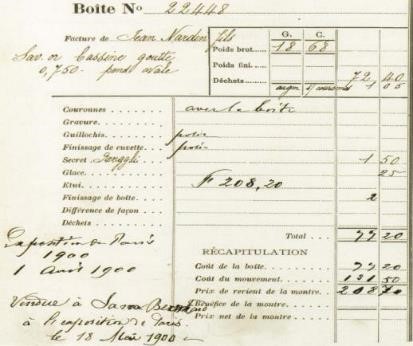 Boîte No 22448
Facture de Jean Nardin fils
G. C.
Sav. or Bassine goutte
Poids brut 18 68
0,750 - ponds ovale
Poids fini
Déchets 72 40
1 05
Couronnes avec la boîte
Gravure
Guillochis polie
Finissage de cuvette polie
Secret 1 50
Glace 25
Etui F 208,20
Finissage de boîte 2
Différence de façon
Déchets
Exposition de Paris
1900
1 Avril 1900
Total 77 20
RÉCAPITULATION
Coût de la boîte 77 20
Coût du mouvement 131 50
Prix de revient de la montre 208 70
Vendue à Sara
Bénéfice de la montre
à l'exposition de Paris
Prix net de la montre
le 18 Mai 1900